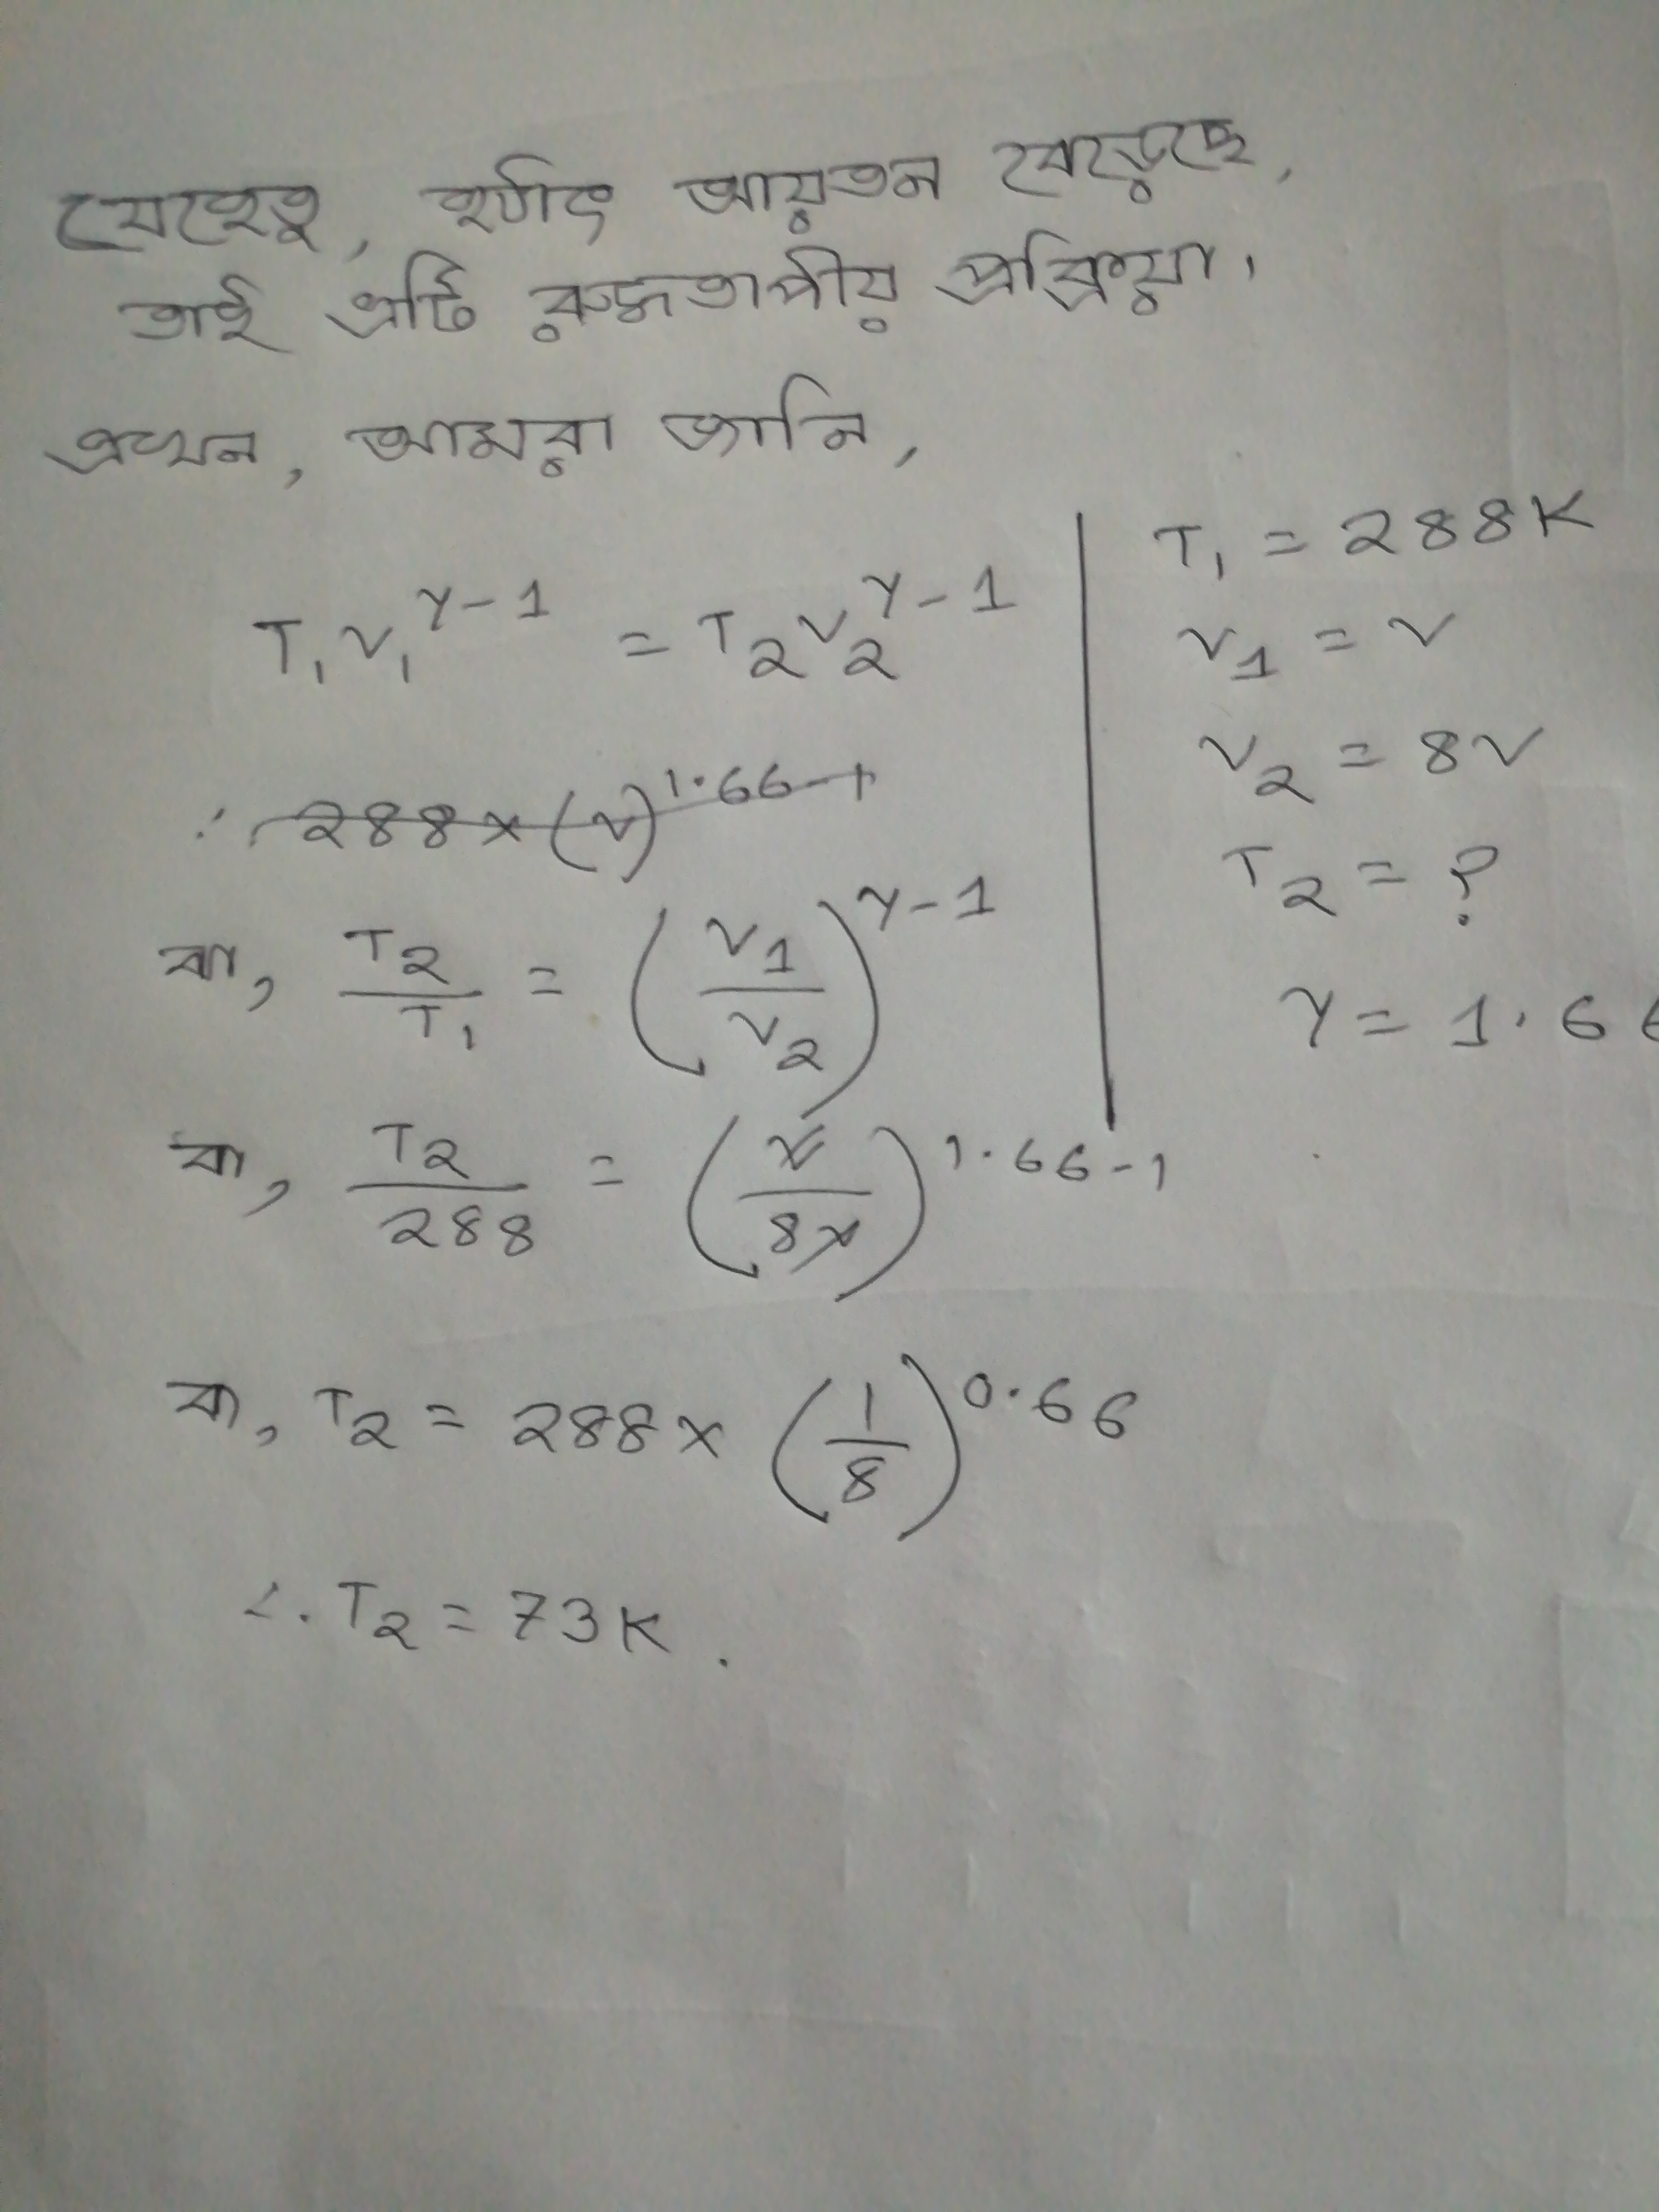 যেহেতু, হঠাৎ আয়তন বেড়েছে,
তাই এটি রুদ্ধতাপীয় প্রক্রিয়া।
এখন, আমরা জানি,
T₁V₁^γ-1 = T₂V₂^γ-1
∴ 288×(V)^1.66-1
বা, T₂/T₁ = (V₁/V₂)^γ-1
বা, T₂/288 = (V/8V)^1.66-1
বা, T₂ = 288 × (1/8)^0.66
∴ T₂ = 73K.
T₁ = 288K
V₁ = V
V₂ = 8V
T₂ = ?
γ = 1.66